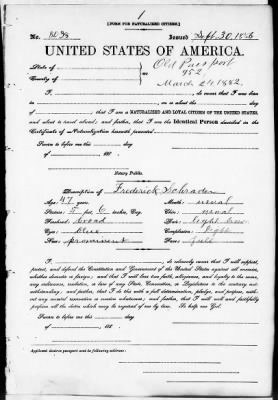 [FORM FOR NATURALIZED CITIZEN.]
No. Issued Sept. 30, 1886
UNITED STATES OF AMERICA.
State of
County of
Old Passport
952
March 24 1882.
I, do swear that I was born
in , on the day
of ; that I am a NATURALIZED AND LOYAL CITIZEN OF THE UNITED STATES,
and about to travel abroad; and further, that I am the Identical Person described in the
Certificate of Naturalization herewith presented.
Sworn to before me this day
of , 188
Notary Public.
Description of Frederick Schrader
Age: 47 years
Mouth: usual
Stature: 5 feet 6 inches, Eng.
Chin: usual
Forehead: broad
Hair: light brown
Eyes: blue
Complexion: light
Nose: prominent
Face: full
I, , do solemnly swear that I will support,
protect, and defend the Constitution and Government of the United States against all enemies,
whether domestic or foreign; and that I will bear true faith, allegiance, and loyalty to the same,
any ordinance, resolution, or law of any State, Convention, or Legislature to the contrary not-
withstanding; and further, that I do this with a full determination, pledge, and purpose, with-
out any mental reservation or evasion whatsoever; and further, that I will well and faithfully
perform all the duties which may be required of me by law. So help me God.
Sworn to before me this day
of , 188
Applicant desires passport sent to following address: